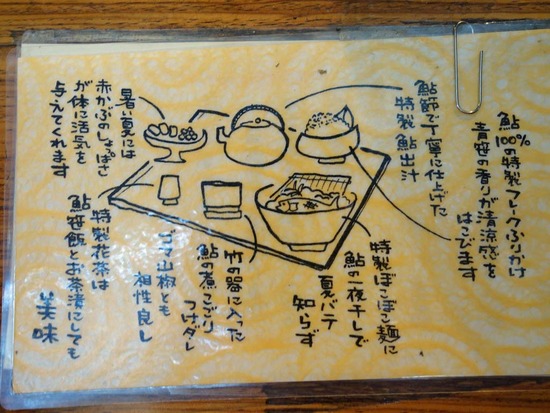 鮎
100%
の特製フレークふりかけ
青笹の香りが清涼感を
はこびます
鮎節で丁寧に仕上げた
特製 鮎出汁
暑い夏には
赤かぶのしょっぱさ
が体に活気を
与えてくれます
特製ぽこぽこ麺に
鮎の一夜干しで
夏バテ
知らず
竹の器に入った
鮎の煮こごり
つけダレ
ゴマ山椒とも
相性良し
特製花茶は
鮎笹飯とお茶漬にしても
美味